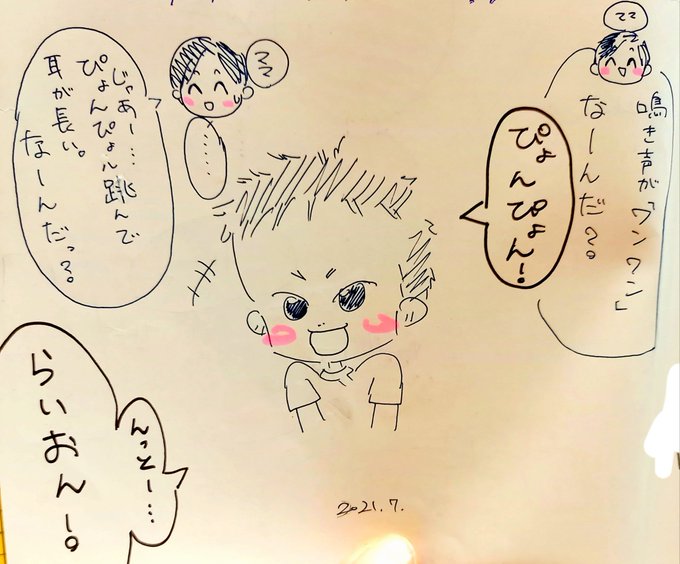 ママ
鳴き声が「ワンワン」
なーんだ？。
ぴょんぴょん！
ママ
……
じゃあー…
ぴょんぴょん跳んで
耳が長い。
なーんだっ？。
んっとー…
らいおんー！。
2021.7.